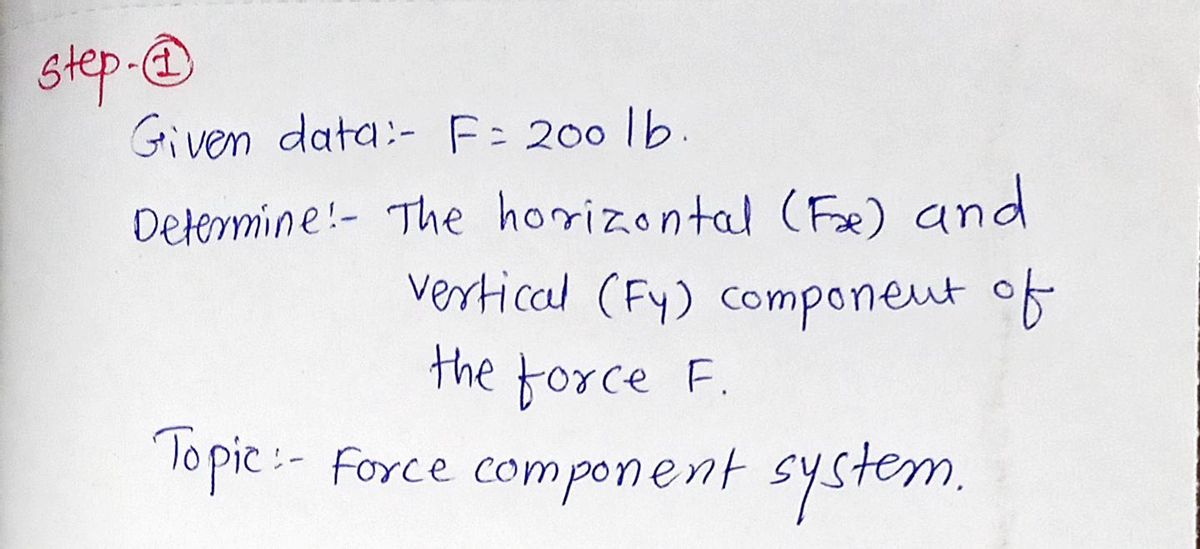 step-①
Given data:- F = 200 lb.
Determine:- The horizontal (Fx) and
vertical (Fy) component of
the force F.
Topic:- Force component system.